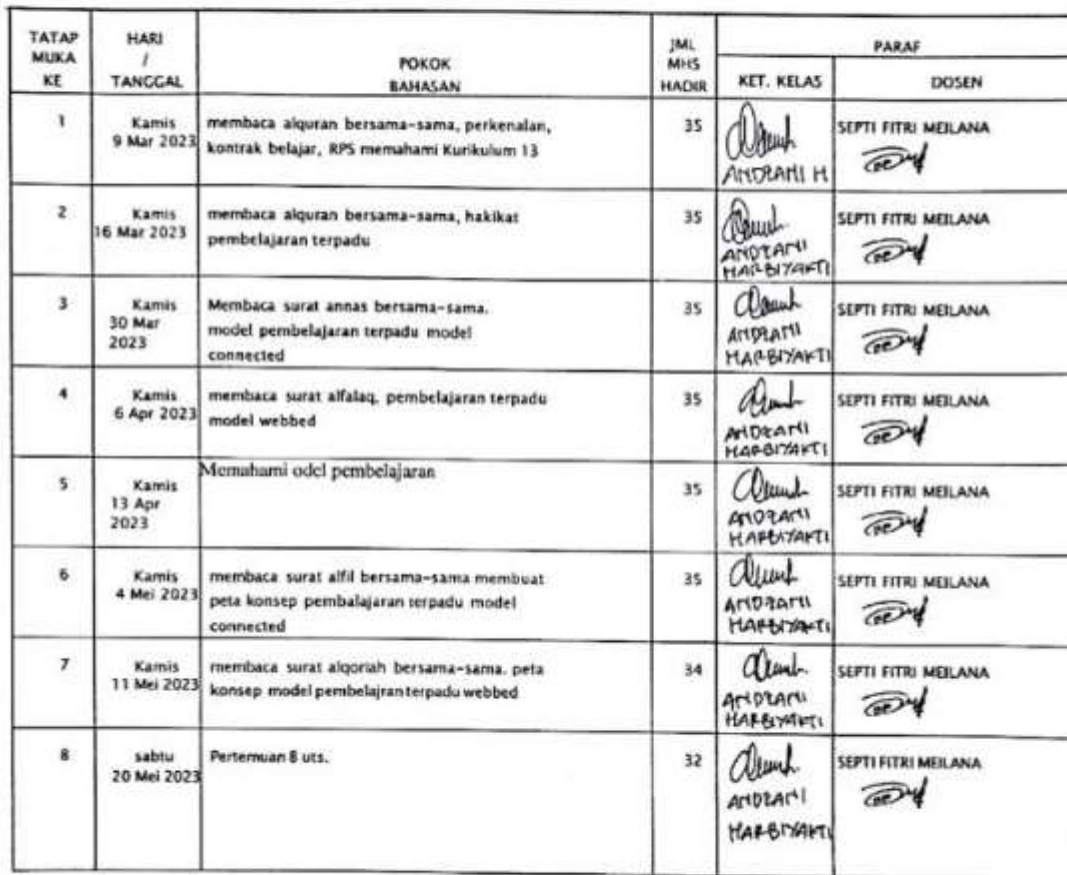 TATAP MUKA KE
HARI / TANGGAL
POKOK BAHASAN
JML MHS HADIR
PARAF
KET. KELAS
DOSEN
1
Kamis
9 Mar 2023
membaca alquran bersama-sama, perkenalan,
kontrak belajar, RPS memahami Kurikulum 13
35
ANDRANI H
SEPTI FITRI MEILANA
2
Kamis
16 Mar 2023
membaca alquran bersama-sama, hakikat
pembelajaran terpadu
35
ANDRANI
HARBIYAKTI
SEPTI FITRI MEILANA
3
Kamis
30 Mar
2023
Membaca surat annas bersama-sama.
model pembelajaran terpadu model
connected
35
ANDRANI
HARBIYAKTI
SEPTI FITRI MEILANA
4
Kamis
6 Apr 2023
membaca surat alfalaq, pembelajaran terpadu
model webbed
35
ANDRANI
HARBIYAKTI
SEPTI FITRI MEILANA
5
Kamis
13 Apr
2023
Memahami odel pembelajaran
35
ANDRANI
HARBIYAKTI
SEPTI FITRI MEILANA
6
Kamis
4 Mei 2023
membaca surat alfil bersama-sama membuat
peta konsep pembalajaran terpadu model
connected
35
ANDRANI
HARBIYAKTI
SEPTI FITRI MEILANA
7
Kamis
11 Mei 2023
membaca surat alqoriah bersama-sama. peta
konsep model pembelajran terpadu webbed
34
ANDRANI
HARBIYAKTI
SEPTI FITRI MEILANA
8
sabtu
20 Mei 2023
Pertemuan 8 uts.
32
ANDRANI
HARBIYAKTI
SEPTI FITRI MEILANA